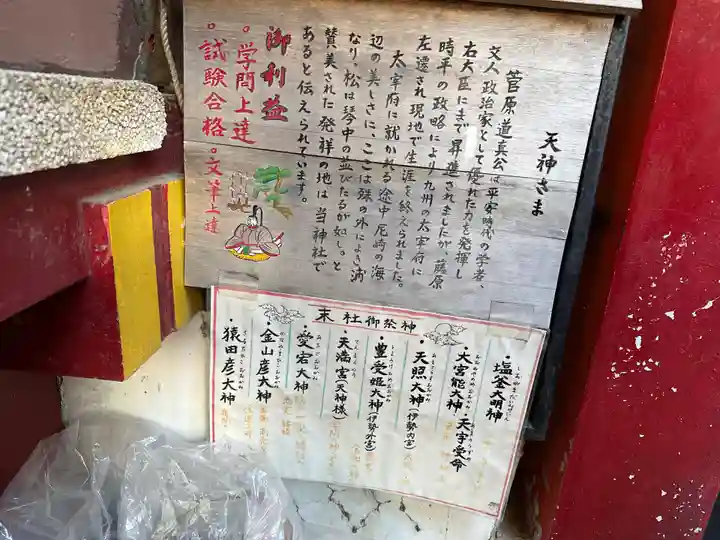 天神さま
菅原道真公は平安時代の学者、
文人政治家として優れた力を発揮し
右大臣にまで昇進されましたが、藤原
時平の政略により九州の太宰府に
左遷され現地で生涯を終えられました。
太宰府に就かれる途中、尼崎の海
辺の美しさに、ここは殊の外によき浦
なり、松は琴中の並びたるが如し。と
賛美された発祥の地は当神社で
あると伝えられています。
御利益
・学問上達
・試験合格・文筆上達
末社御祭神
・塩釜大明神
・大宮能大神・天宇受命
・天照大神(伊勢内宮)
・豊受姫大神(伊勢外宮)
・天満宮(天神様)
・愛宕大神
・金山彦大神
・猿田彦大神